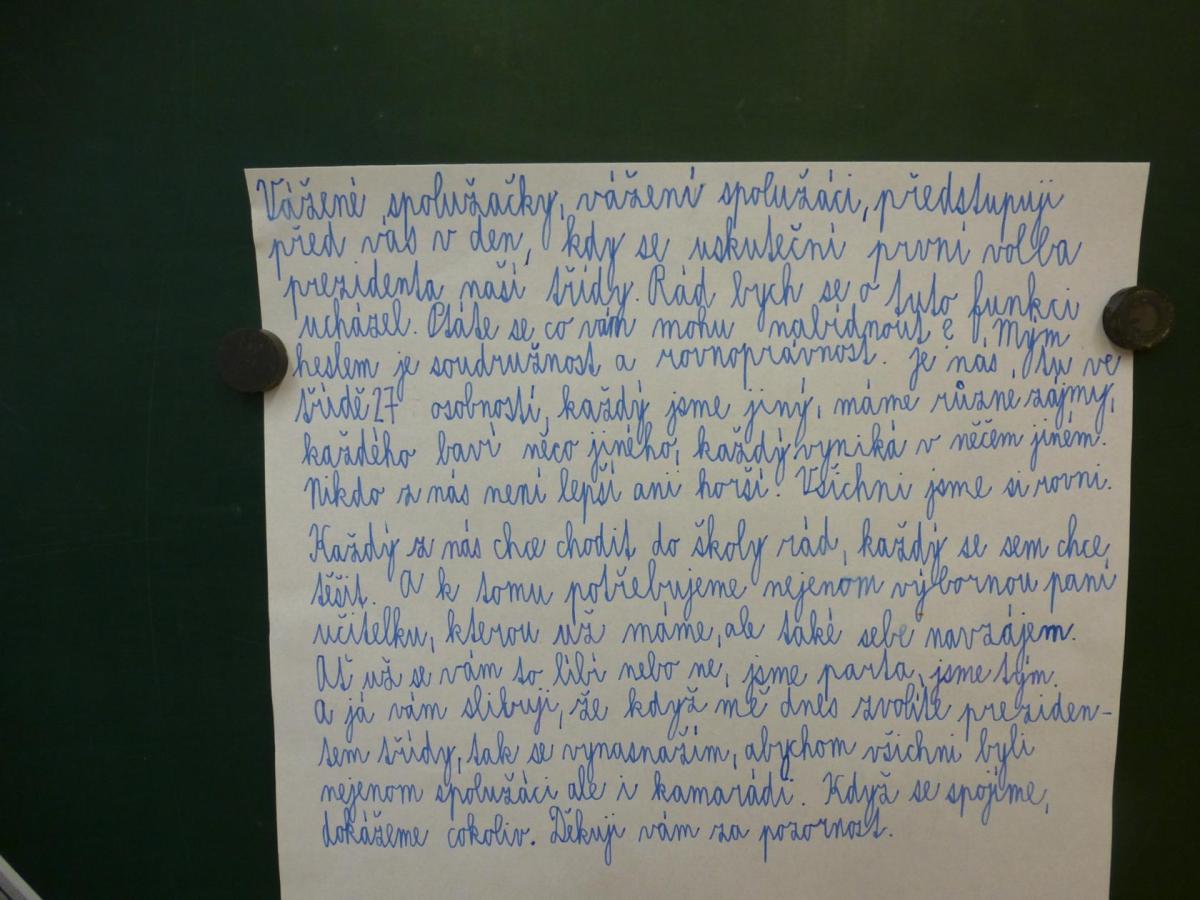 Vážené spolužačky, vážení spolužáci, předstupuji
před vás v den, kdy se uskuteční první volba
prezidenta naší třídy. Rád bych se o tuto funkci
ucházel. Ptáte se, co vám mohu nabídnout? Mým
heslem je soudružnost a rovnoprávnost. Je nás tu ve
třídě 27 osobností, každý jsme jiný, máme různé zájmy,
každého baví něco jiného, každý vyniká v něčem jiném.
Nikdo z nás není lepší ani horší. Všichni jsme si rovni.
Každý z nás chce chodit do školy rád, každý se sem chce
těšit. A k tomu potřebujeme nejenom výbornou paní
učitelku, kterou už máme, ale také sebe navzájem.
Ať už se vám to líbí nebo ne, jsme parta, jsme tým.
A já vám slibuji, že když mě dnes zvolíte preziden-
tem třídy, tak se vynasnažím, abychom všichni byli
nejenom spolužáci ale i kamarádi. Když se spojíme,
dokážeme cokoliv. Děkuji vám za pozornost.